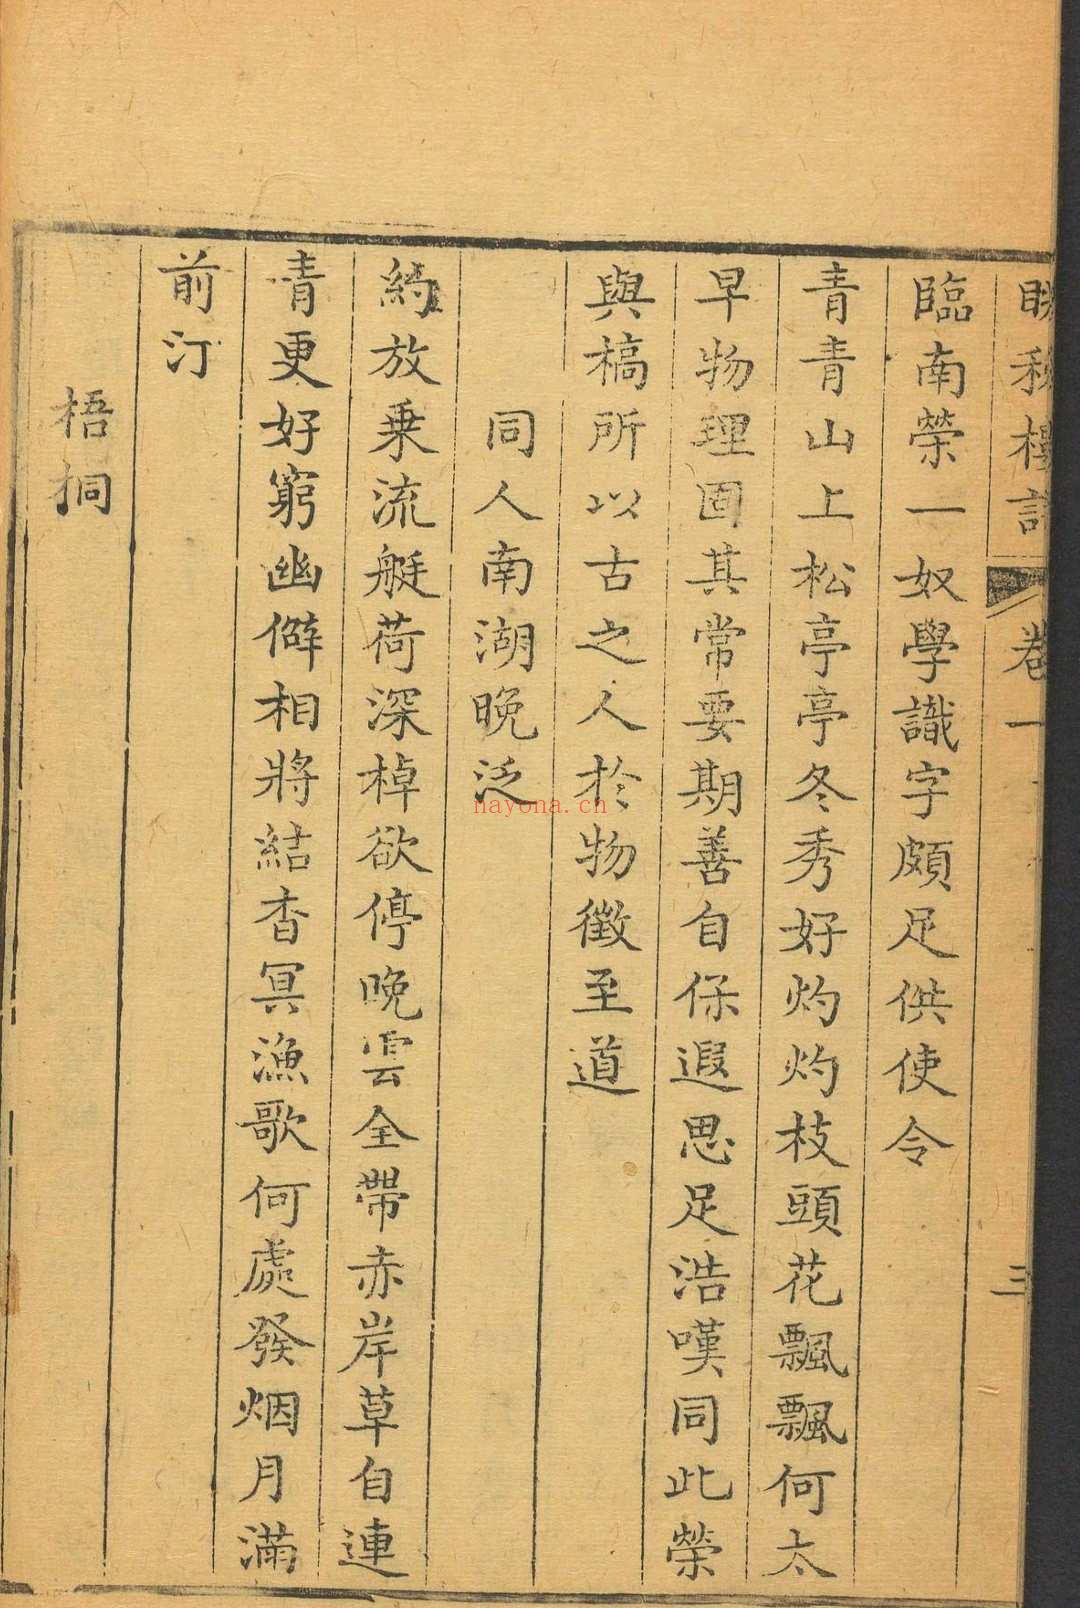 秋樓詩 卷一 三
臨南榮一奴學識字頗足供使令
青青山上松亭亭冬秀好灼灼枝頭花飄飄何太
早物理固其常要期善自保遐思足浩嘆同此榮
與槁所以古之人於物徵至道
同人南湖晚泛
約放乗流艇荷深棹欲停晚雲全帶赤岸草自連
青更好窮幽僻相將結杳冥漁歌何處發烟月滿
前汀
梧桐
nayona.cn